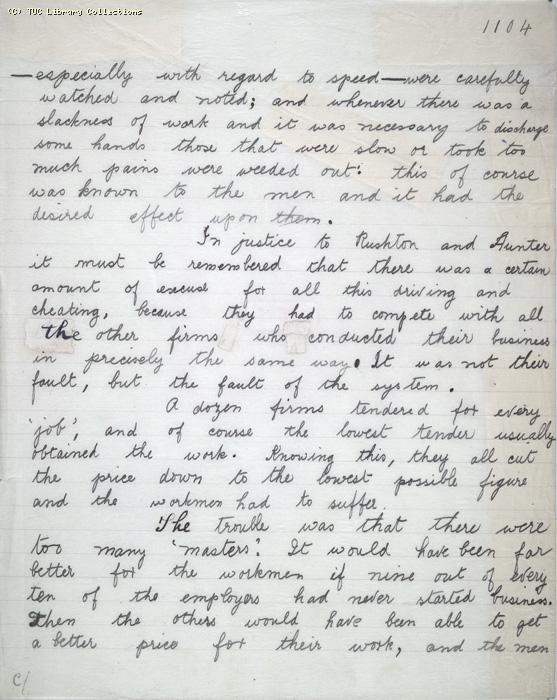 (C) TUC Library Collections
1104
—especially with regard to speed—were carefully
watched and noted; and whenever there was a
slackness of work and it was necessary to discharge
some hands those that were slow or took 'too
much pains' were weeded out: this of course
was known to the men and it had the
desired effect upon them.
In justice to Rushton and Hunter
it must be remembered that there was a certain
amount of excuse for all this driving and
cheating, because they had to compete with all
the other firms who conducted their business
in precisely the same way. It was not their
fault, but the fault of the system.
A dozen firms tendered for every
'job', and of course the lowest tender usually
obtained the work. Knowing this, they all cut
the price down to the lowest possible figure
and the workmen had to suffer.
The trouble was that there were
too many 'masters'. It would have been far
better for the workmen if nine out of every
ten of the employers had never started business.
Then the others would have been able to get
a better price for their work, and the men
C/